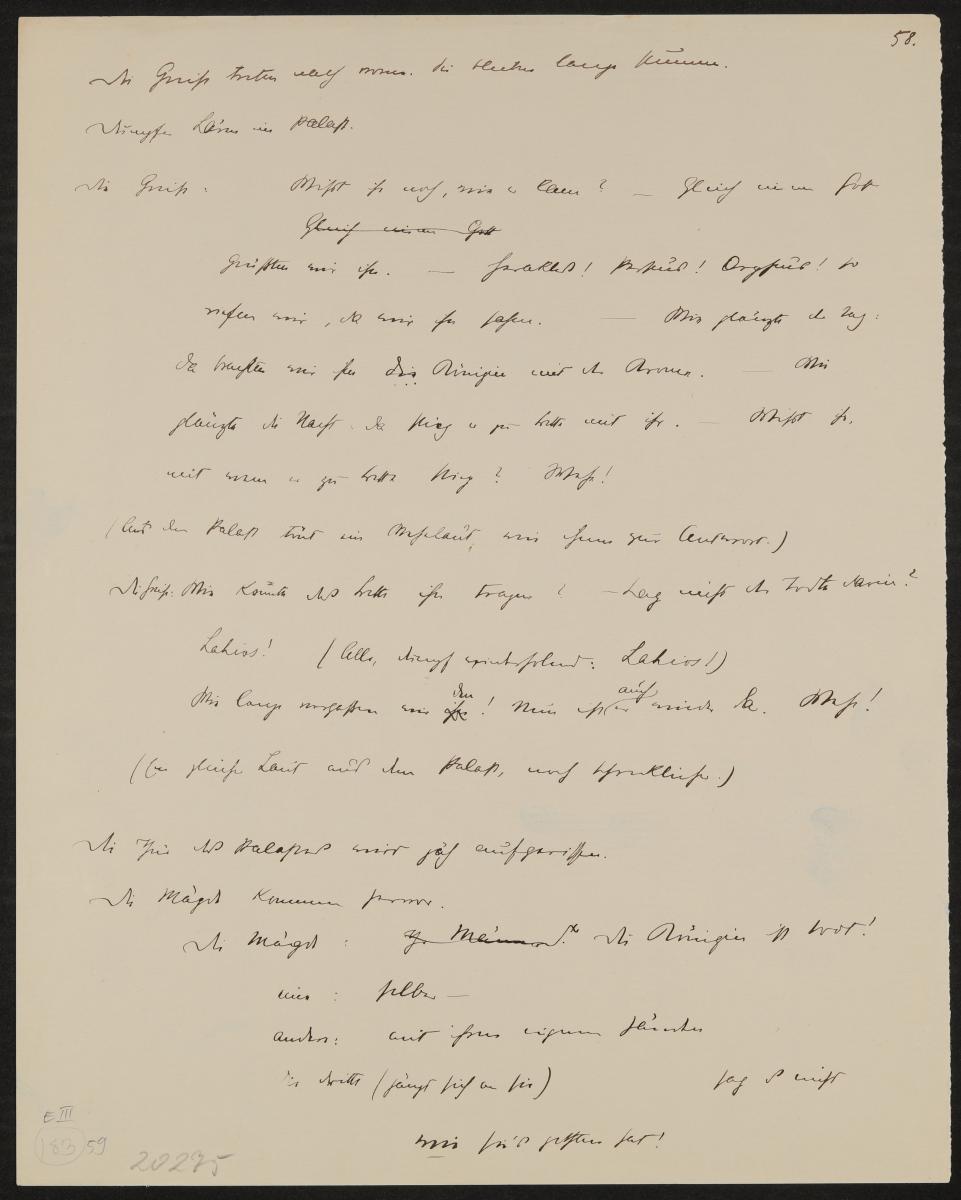 58.
Die Greise treten nach vorne. Sie bleiben lange stumm.
Dumpfer Lärm im Palast.
Die Greise: Wißt ihr noch, wie er kam? — Gleich einem Gott
Gleich einem Gott
grüßten wir ihn. — Herakles! Perseus! Orpheus! so
riefen wir, da wir ihn sahen. — Wie glänzte der Tag:
da brachten wir ihm die Königin und die Krone. — Wie
glänzte die Nacht: da stieg er zu Bette mit ihr. — Wißt ihr,
mit wem er zu Bette stieg? Wehe!
(Aus dem Palast tönt ein Wehelaut, wie ihnen zur Antwort.)
Die Greise: Wie konnte das Bette ihn tragen? — Lag nicht der Todte darin?
Lahios! (Alle, dumpf wiederholend: Lahios!)
Wie lange vergaßen wir ihn den! Nun ist er auch wieder da. Wehe!
(Der gleiche Laut aus dem Palast, noch schrecklicher.)
Die Thür des Palastes wird jäh aufgerissen.
Die Mägde kommen hervor.
Die Mägde: Ihr Männer! Die Königin ist todt!
eine: selber —
andere: mit ihren eigenen Händen
die dritte (hängt sich an sie) sag es nicht
wie sie's gethan hat!
E III
183 59
20275